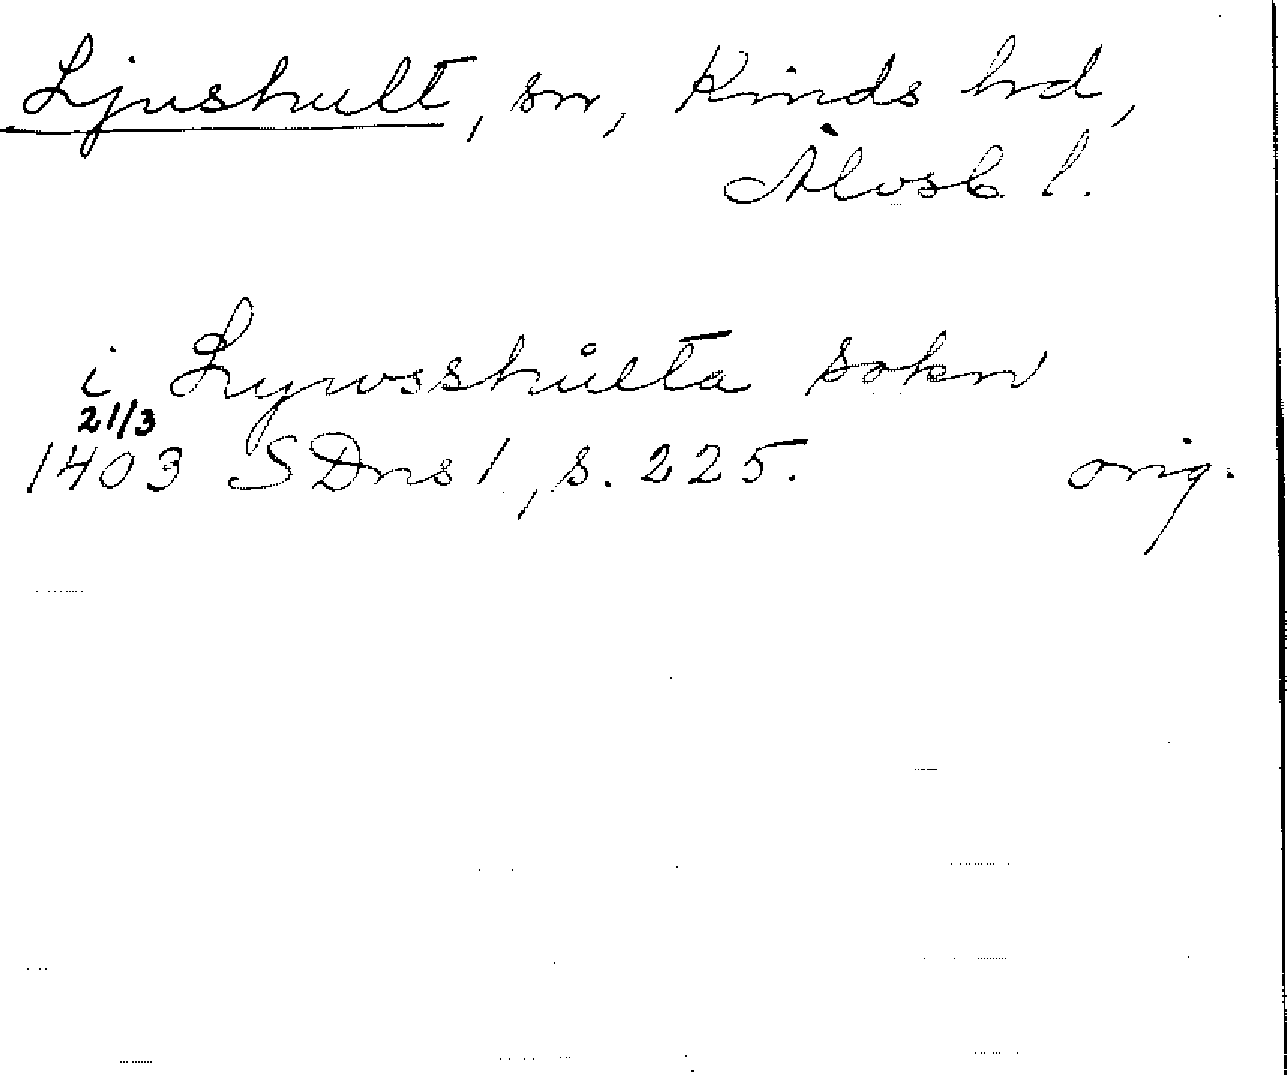 Ljushult, sn, Kinds hd,
Älvsb l.
i Lywsshulta sokn
21/3
1403 SDns 1, s. 225. orig.